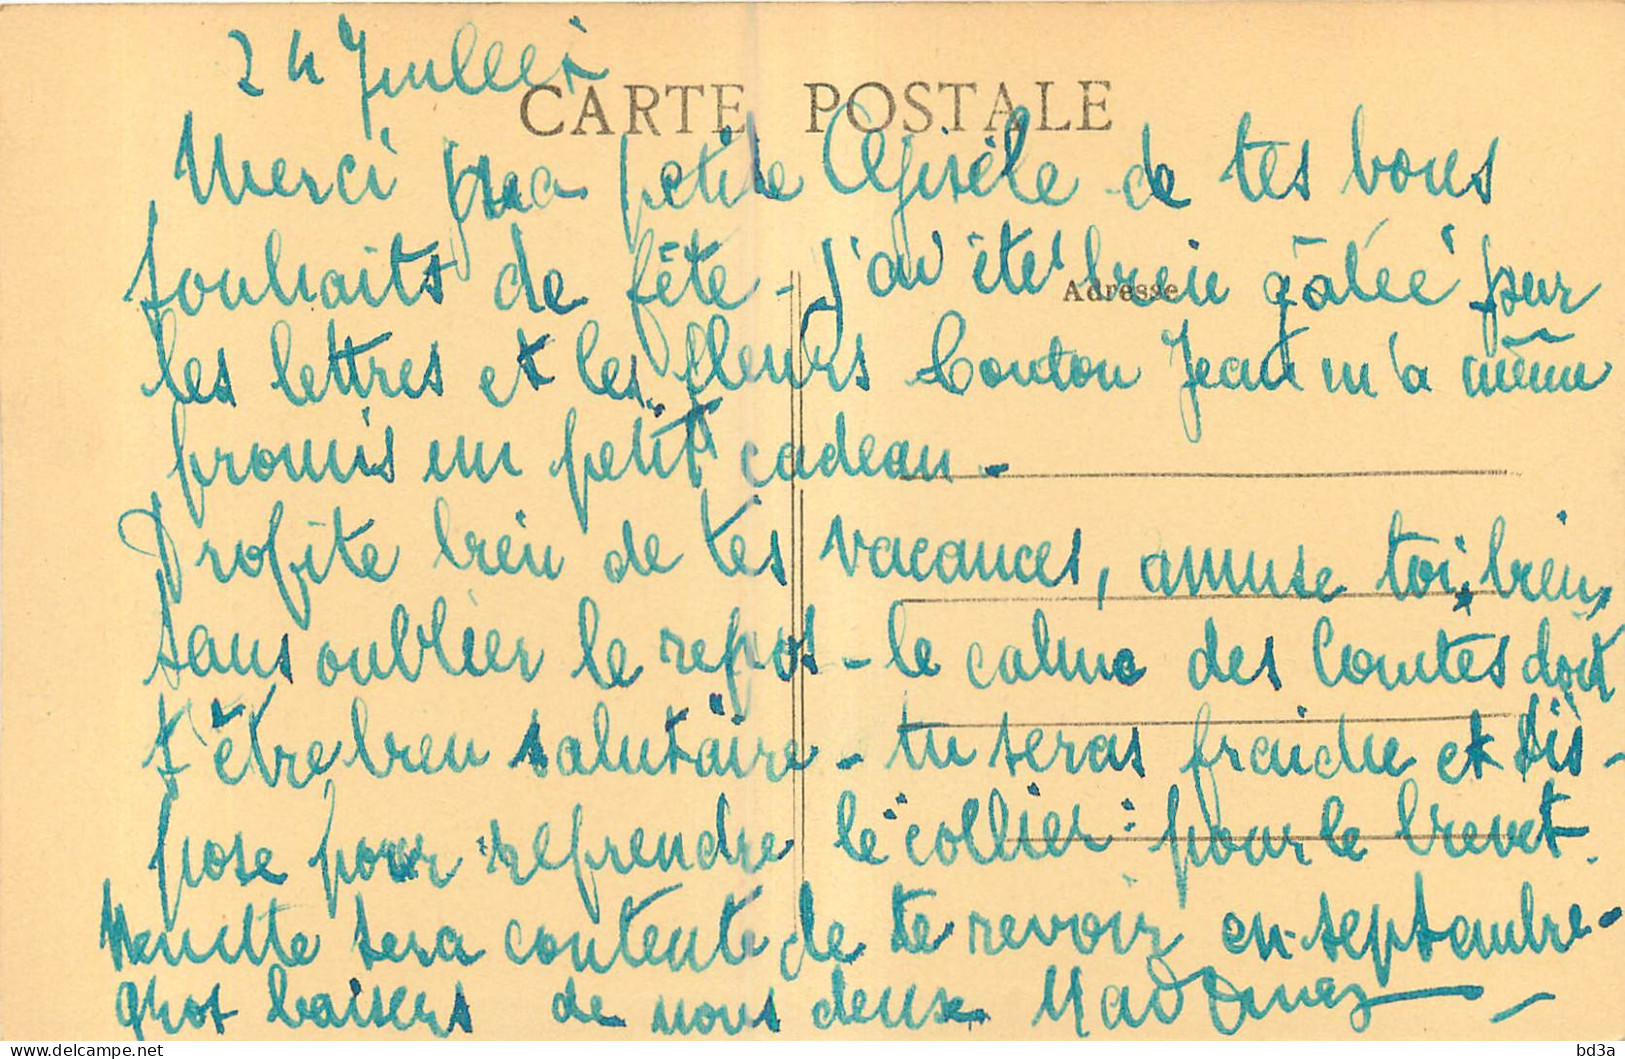 24 Juillet
CARTE POSTALE
Merci ma petite Gisèle de tes bons
souhaits de fête - j'ai été bien gâtée par
Adresse
les lettres et les fleurs Tonton Jean m'a même
promis un petit cadeau -
Profite bien de tes vacances, amuse toi bien,
sans oublier le repos - le calme des Comtes doit
t'être bien salutaire - tu seras fraiche et dis-
pose pour reprendre le "collier" pour le brevet.
sera contente de te revoir en septembre -
gros baisers de nous deux
bd3a